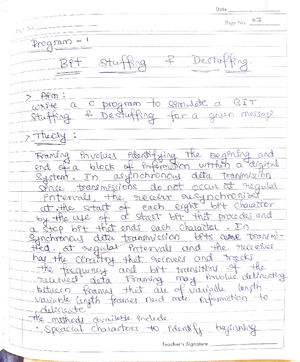 Date
Page No. 02
Program - 1
Bit Stuffing & Destuffing
> Aim:
write a C program to simulate a BIT
Stuffing & Destuffing for a given message
> Theory:
Framing involves identifying the beginning and
end of a block of information within a digital
System. In asynchronous data transmission
since transmissions do not occur at regular
intervals, the receiver resynchronizes
at the start of each eight bit character
by the use of a start bit that precedes and
a stop bit that ends each character. In
Synchronous data transmission bits are transmi-
tted at regular intervals and the receiver
has the circuitry that recovers and tracks
the frequency and bit transitions of the
received data. Framing may involve delineating
between frames that are of variable length
variable length frames need more information to
delineate.
the methods available include.
· Special characters to identify beginning
Teacher's Signature